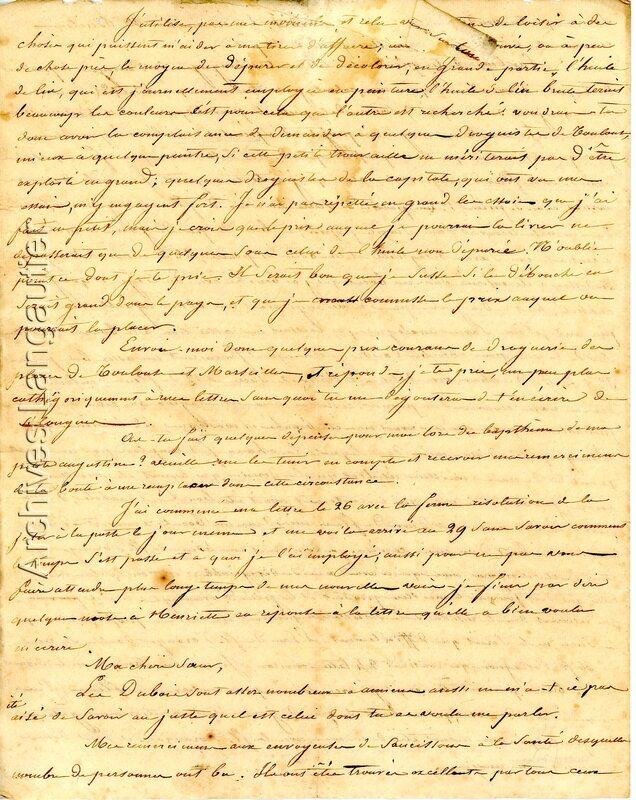 J'utilise, par une
choses qui puissent m'aider à me tirer d'affaire; ou à peu
de chose près le moyen de dépurer et de décolorer, en grande partie, l'huile
de lin, qui est journellement employée en peinture. l'huile de lin brute ternit
beaucoup les couleurs c'est pour cela que l'autre est recherchée. voudrais-tu
donc avoir la complaisance de demander à quelques droguistes de Toulouse,
mieux à quelque peintre, si cette petite trouvaille ne mériterait pas d'être
exploitée en grand; quelques droguistes de la capitale, qui ont vu mes
essais, m'y engagent fort. Je n'ai pas répété en grand les essais que j'ai
fait en petit, mais je crois que le prix auquel je pourrai la livrer ne
dépasserait que de quelques sous celui de l'huile non dépurée. N'oublie
point ce dont je te prie. Il serait bon que je susse si le débouché en
serait grand dans le pays, et que je connusse le prix auquel on
pourrait la placer.
Envoie-moi donc quelques prix courans de droguerie des
places de Toulouse et Marseille, et réponds, je te prie, un peu plus
cathégoriquement à mes lettres sans quoi tu me dégouteras de t'en écrire de
si longues.
As-tu fait quelques dépenses pour moi lors du bapthême de ma
petite augustine? veuille me le tenir en compte et recevoir mes remerciemens
de ta bonté à me remplacer dans cette circonstance.
J'ai commencé ma lettre le 26 avec la ferme résolution de la
jeter à la poste le jour même et me voilà arrivé au 29 sans savoir comment
le temps s'est passé et à quoi je l'ai employé; aussi pour ne pas vous
faire attendre plus longtemps de mes nouvelles vais-je finir par dire
quelques mots à Henriette en réponse à la lettre qu'elle a bien voulu
m'écrire.
Ma chère Sœur,
Les Dubois sont assez nombreux à amiens aussi ne m'a-t-il pas
été aisé de savoir au juste quel est celui dont tu as voulu me parler.
Mes remerciemens aux envoyeuses de saucissons à la santé desquelles
nombre de personnes ont bu. Ils ont été trouvés excellents par tous ceux
Archives Langlaffet